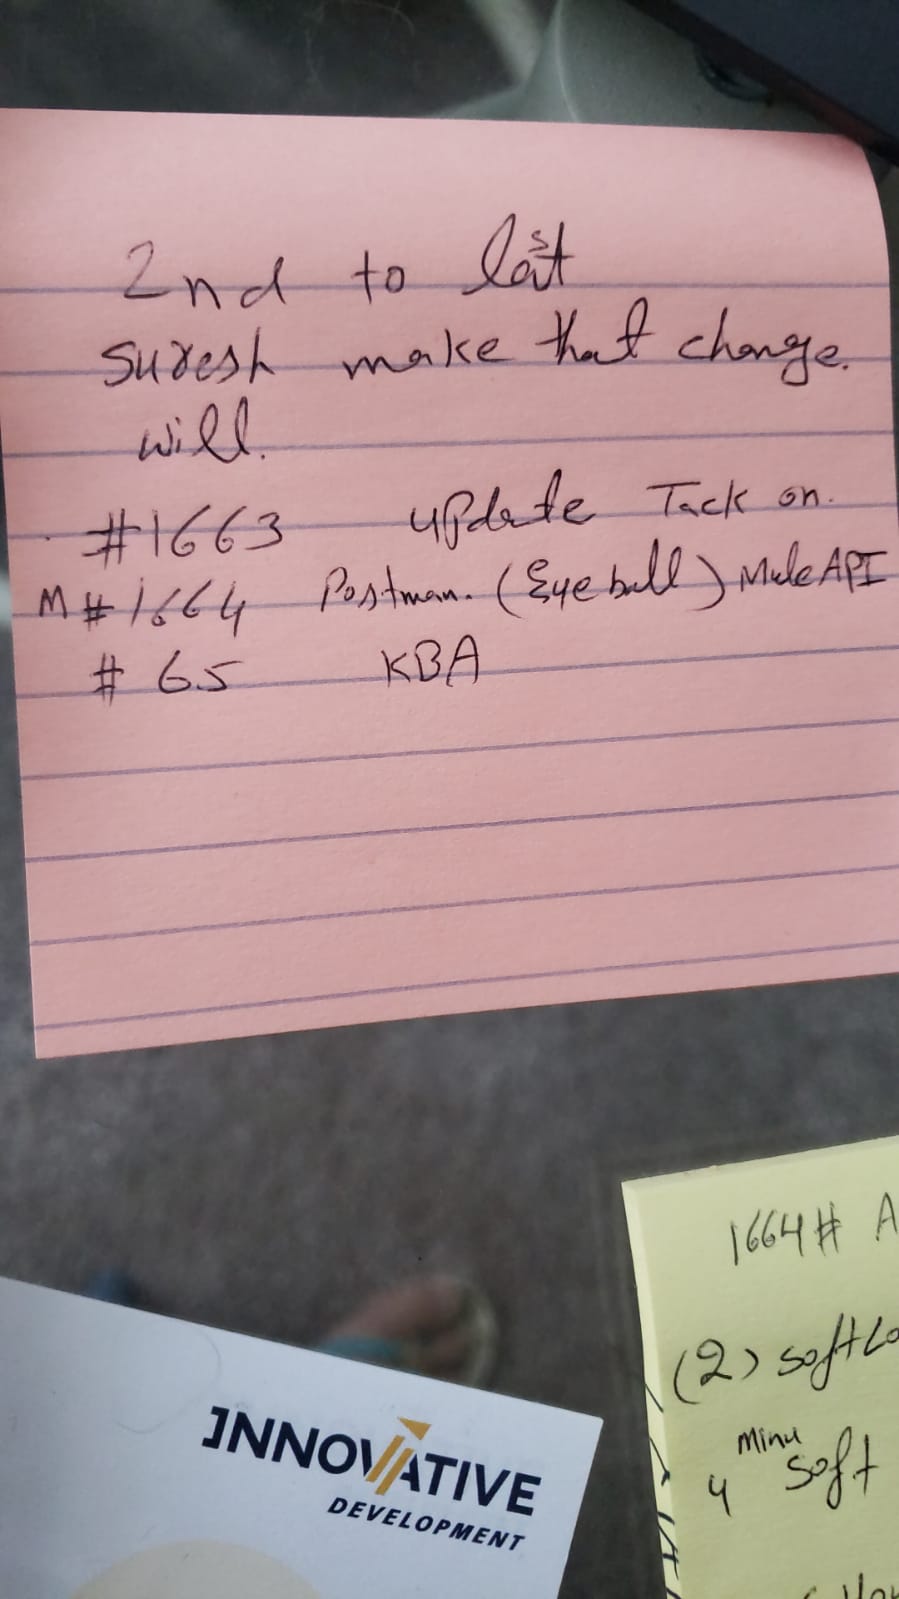 2nd to last
suresh make that change.
will.
#1663 update Tack on.
M #1664 Postman. (Eyeball) Mule API
# 65 KBA
1664# A
(2) soft Lo
Minu
4 soft
INNOVATIVE
DEVELOPMENT